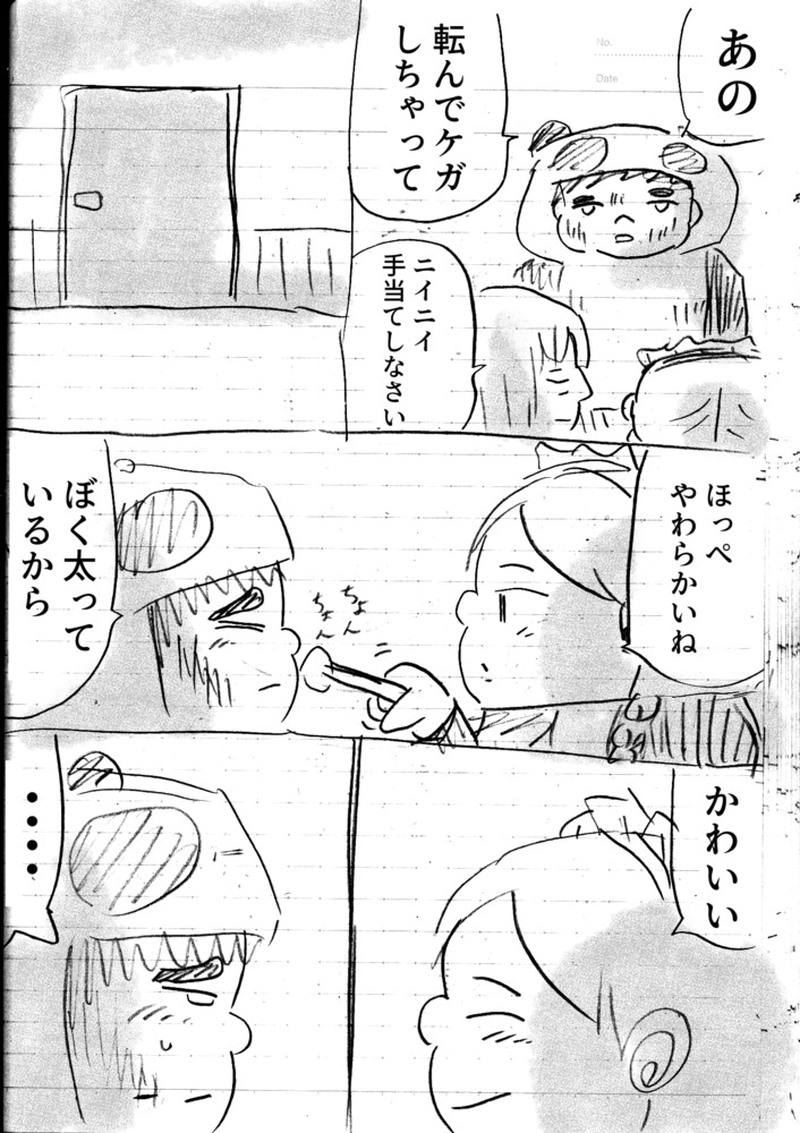 No.
Date
あの
転んでケガ
しちゃって
ニイニイ
手当てしなさい
ほっぺ
やわらかいね
ちょん
ちょん
ぼく太って
いるから
かわいい
・・・・